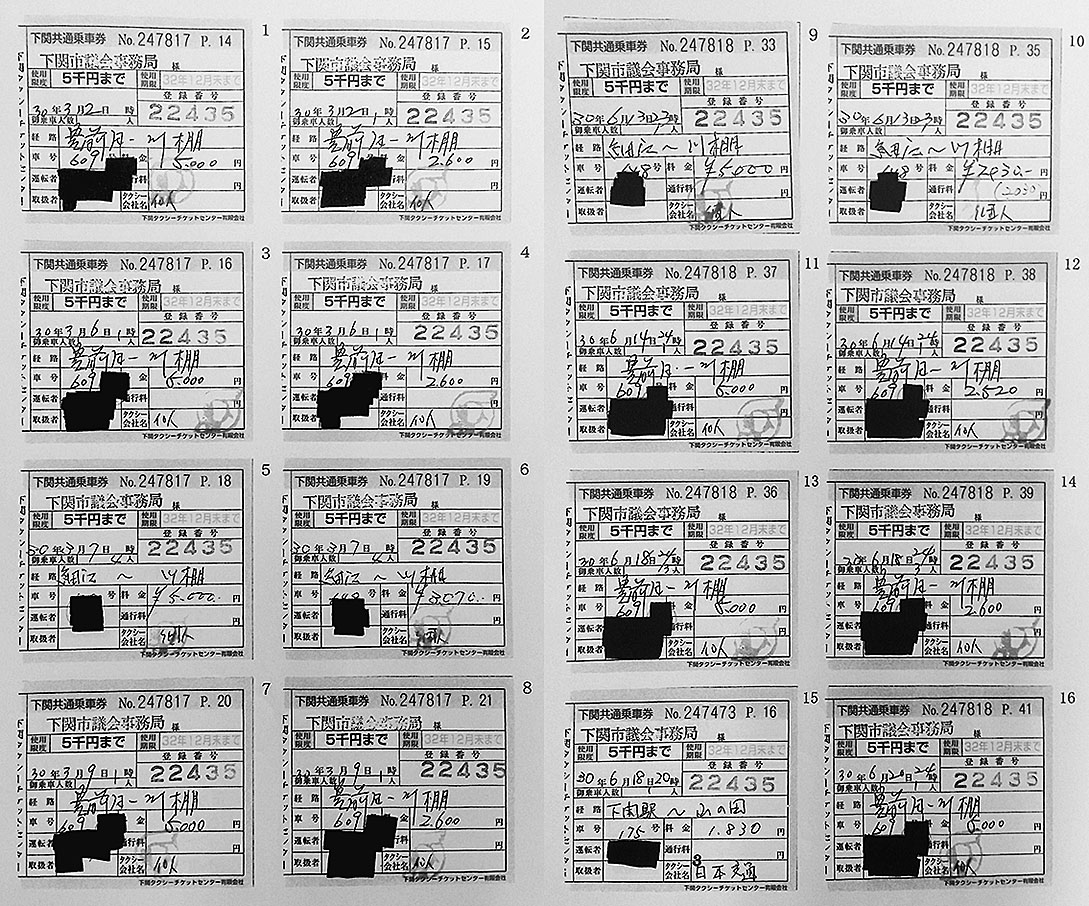 1
下関共通乗車券 No.247817 P. 14
下関市議会事務局 様
使用限度 5千円まで 使用期限 32年12月末まで
登録番号
30年3月2日1時 22435
御乗車人数 人
経路 豊前田ー川棚
車号 609 金 5.000円
運転者 円
取扱者 タクシー会社名 個人
下関タクシーチケットセンター有限会社
2
下関共通乗車券 No.247817 P. 15
下関市議会事務局 様
使用限度 5千円まで 使用期限 32年12月末まで
登録番号
30年3月2日1時 22435
御乗車人数 人
経路 豊前田ー川棚
車号 609 金 2.600円
運転者 円
取扱者 タクシー会社名 個人
下関タクシーチケットセンター有限会社
3
下関共通乗車券 No.247817 P. 16
下関市議会事務局 様
使用限度 5千円まで 使用期限 32年12月末まで
登録番号
30年3月6日1時 22435
御乗車人数 人
経路 豊前田ー川棚
車号 609 金 5.000円
運転者 通行料 円
取扱者 タクシー会社名 個人
下関タクシーチケットセンター有限会社
4
下関共通乗車券 No.247817 P. 17
下関市議会事務局 様
使用限度 5千円まで 使用期限 32年12月末まで
登録番号
30年3月6日1時 22435
御乗車人数 人
経路 豊前田ー川棚
車号 609 金 2.600円
運転者 通行料 円
取扱者 タクシー会社名 個人
下関タクシーチケットセンター有限会社
5
下関共通乗車券 No.247817 P. 18
下関市議会事務局 様
使用限度 5千円まで 使用期限 32年12月末まで
登録番号
30年3月7日 時 22435
御乗車人数 4人
経路 細江〜川棚
車号 号 料金 ¥5.000.-円
運転者 通行料 円
取扱者 タクシー会社名 個人
下関タクシーチケットセンター有限会社
6
下関共通乗車券 No.247817 P. 19
下関市議会事務局 様
使用限度 5千円まで 使用期限 32年12月末まで
登録番号
30年3月7日 時 22435
御乗車人数 4人
経路 細江〜川棚
車号 号 料金 ¥3.070.-円
運転者 通行料 円
取扱者 タクシー会社名 個人
下関タクシーチケットセンター有限会社
7
下関共通乗車券 No.247817 P. 20
下関市議会事務局 様
使用限度 5千円まで 使用期限 32年12月末まで
登録番号
30年3月9日1時 22435
御乗車人数 人
経路 豊前田ー川棚
車号 609 金 5.000円
運転者 円
取扱者 タクシー会社名 個人
下関タクシーチケットセンター有限会社
8
下関共通乗車券 No.247817 P. 21
下関市議会事務局 様
使用限度 5千円まで 使用期限 32年12月末まで
登録番号
30年3月9日1時 22435
御乗車人数 人
経路 豊前田ー川棚
車号 609 金 2.600円
運転者 円
取扱者 タクシー会社名 個人
下関タクシーチケットセンター有限会社
9
下関共通乗車券 No.247818 P. 33
下関市議会事務局 様
使用限度 5千円まで 使用期限 32年12月末まで
登録番号
30年6月13日 時 22435
御乗車人数 人
経路 細江〜川棚
車号 号 料金 ¥5.000円
運転者 通行料 円
取扱者 タクシー会社名 個人
下関タクシーチケットセンター有限会社
10
下関共通乗車券 No.247818 P. 35
下関市議会事務局 様
使用限度 5千円まで 使用期限 32年12月末まで
登録番号
30年6月13日 時 22435
御乗車人数 人
経路 細江〜川棚
車号 号 料金 ¥2030.-
運転者 通行料 (2030 円
取扱者 タクシー会社名 個人
下関タクシーチケットセンター有限会社
11
下関共通乗車券 No.247818 P. 37
下関市議会事務局 様
使用限度 5千円まで 使用期限 32年12月末まで
登録番号
30年6月14日24時 22435
御乗車人数 1人
経路 豊前田ー川棚
車号 609 金 5.000円
運転者 通行料 円
取扱者 タクシー会社名 個人
下関タクシーチケットセンター有限会社
12
下関共通乗車券 No.247818 P. 38
下関市議会事務局 様
使用限度 5千円まで 使用期限 32年12月末まで
登録番号
30年6月14日24時 22435
御乗車人数 1人
経路 豊前田ー川棚
車号 609 金 2.520円
運転者 通行料 円
取扱者 タクシー会社名 個人
下関タクシーチケットセンター有限会社
13
下関共通乗車券 No.247818 P. 36
下関市議会事務局 様
使用限度 5千円まで 使用期限 32年12月末まで
登録番号
30年6月18日24時 22435
御乗車人数 3人
経路 豊前田ー川棚
車号 609 料金 5.000円
運転者 通行料 円
取扱者 タクシー会社名 個人
下関タクシーチケットセンター有限会社
14
下関共通乗車券 No.247818 P. 39
下関市議会事務局 様
使用限度 5千円まで 使用期限 32年12月末まで
登録番号
年6月18日24時 22435
御乗車人数 3人
経路 豊前田ー川棚
車号 609 料金 2.600円
運転者 通行料 円
取扱者 タクシー会社名 個人
下関タクシーチケットセンター有限会社
15
下関共通乗車券 No.247473 P. 16
下関市議会事務局 様
使用限度 5千円まで 使用期限 32年12月末まで
登録番号
30年6月18日20時 22435
御乗車人数 1人
経路 下関駅〜山の田
車号 175号 料金 1.830円
運転者 通行料 円
取扱者 タクシー会社名 日本交通
下関タクシーチケットセンター有限会社
16
下関共通乗車券 No.247818 P. 41
下関市議会事務局 様
使用限度 5千円まで 使用期限 32年12月末まで
登録番号
30年6月20日24時 22435
御乗車人数 1人
経路 豊前田ー川棚
車号 609 料金 5.000円
運転者 通行料 円
取扱者 タクシー会社名 個人
下関タクシーチケットセンター有限会社